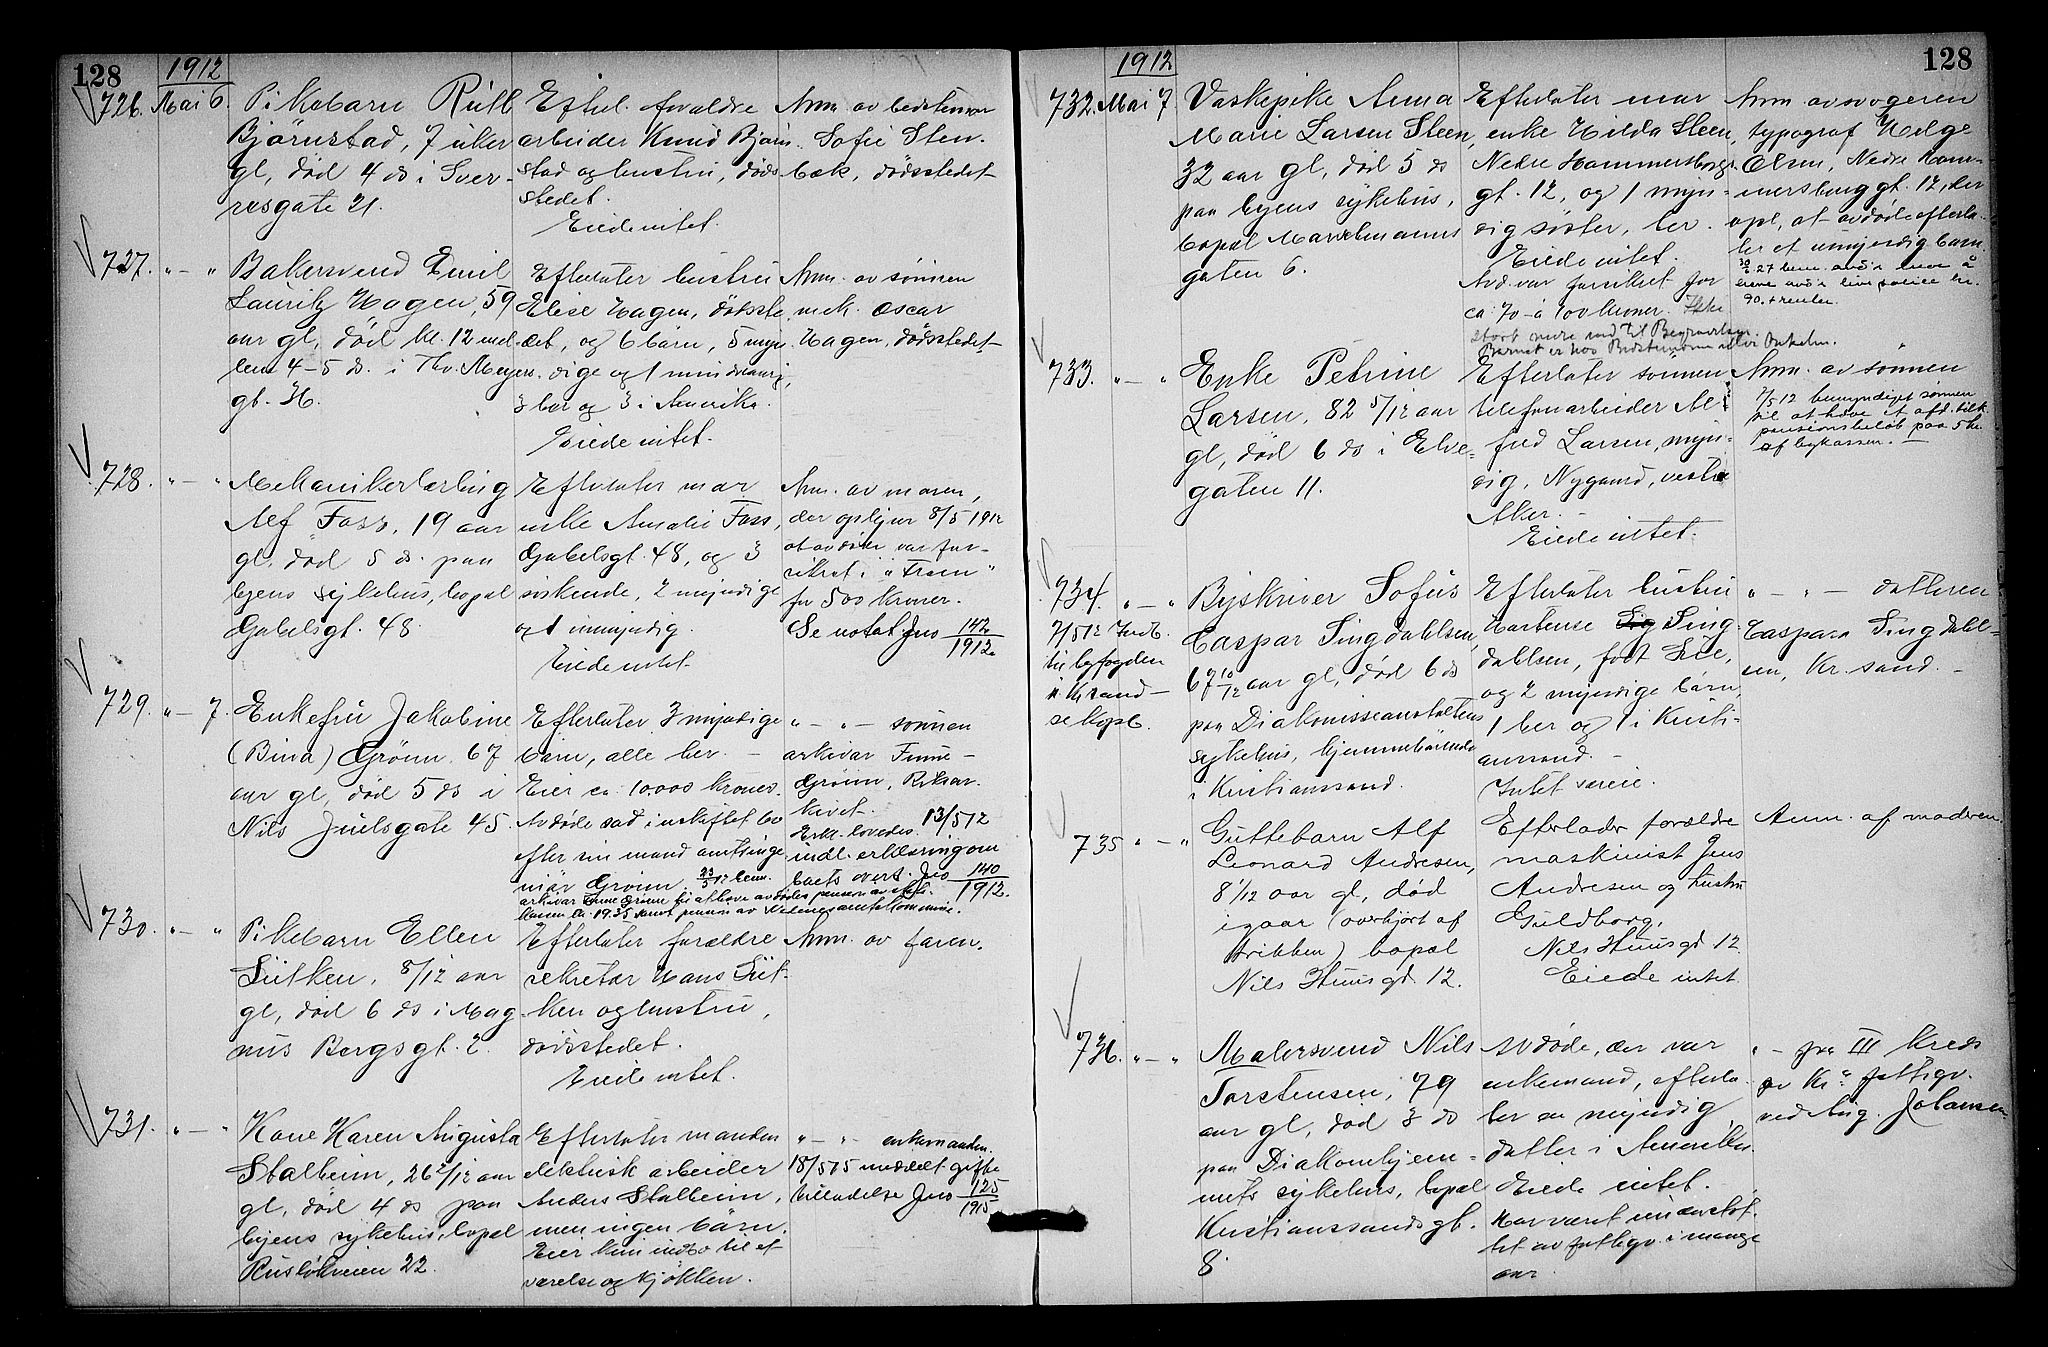 128
1912
726. Mai 6.
Pikebarn Ruth
Bjørnstad, 7 uker
gl, død 4 ds i Sver-
resgate 21.
Efterl. forældre
arbeider Knud Bjørn-
stad og hustru, døds-
stedet.
Eiede intet.
Anm. av bestemor
Sofie Sten-
bæk, dødsstedet
727. " — "
Bakersvend Emil
Lauritz Hagen, 59
aar gl, død kl. 12 mel-
lem 4-5 ds. i Thv. Meyers
gt. 36.
Efterlater hustru
Elise Hagen, dødsste-
det, og 6 barn, 5 myn-
dige og 1 mindreaarig,
3 her og 3 i Amerika.
Eiede intet.
Anm. av sønnen
mek. Oscar
Hagen, dødsstedet
728. " — "
Mekanikerlærling
Alf Foss, 19 aar
gl, død 5 ds. paa
byens sykehus, bopæl
Gabelsgt. 48.
Efterlater mor
enke Amalie Foss,
Gabelsgt. 48, og 3
søskende, 2 myndige
og 1 umyndig.
Eiede intet.
Anm. av moren,
der oplyser 8/5 1912
at avdøde var for-
sikret i "Fram"
for 500 kroner.
Se notat Jno 142/1912.
729. " — 7.
Enkefru Jakobine
(Bina) Grønn, 67
aar gl, død 5 ds i
Nils Juelsgate 45.
Efterlater 3 myndige
barn, alle her. —
Eier ca. 10.000 kroner.
Avdøde sad i uskiftet bo
efter sin mand amtsinge-
niør Grønn. 23/5 12 bem.
arkivar Grønn til at hæve avdødes pension av stats-
kassen kr. 19.35 samt pension av amtskommune.
" — " — sønnen
arkivar
Grønn, Riksar-
kivet.
Erkl. lovedes. 13/5 12
indl. erklæring om
boets overt. Jno 140/1912.
730. " — "
Pikebarn Ellen
Lütken, 8/12 aar
gl, død 6 ds i Mag-
nus Bergsgt. 2.
Efterlater forældre
sekretær Hans Lüt-
ken og hustru,
dødsstedet.
Eiede intet.
Anm. av faren.
731. " — "
Kone Karen Augusta
Stalheim, 26 2/12 aar
gl, død 4 ds paa
byens sykehus, bopæl
Ruseløkveien 22.
Efterlater manden
elektrisk arbeider
Anders Stalheim,
men ingen barn.
Eier kun indbo til et
værelse og kjøkken.
" — " — enkemanden.
18/5 15 meddelt gifte
tilladelse Jno 125/1915
128
1912
732. Mai 7
Vaskepike Anna
Marie Larsen Steen,
32 aar gl, død 5 ds
paa byens sykehus,
bopæl Mariboesgaten 6.
Efterlater mor
enke Hilda Steen,
Nedre Hammersborg-
gt. 12, og 1 myn-
dig søster, her.
Eiede intet.
Avd. var forsikret for
ca 70 à 100 kroner. Ikke
stort mere end til Begravelsen.
Barnet er hos Bedstemoren eller Onkelen.
Anm. av svogeren
typograf Helge
Olsen, Nedre Ham-
mersborggt. 12, der
opl, at avdøde efterla-
ter et umyndig barn.
90. + renter.
733. " — "
Enke Petrine
Larsen, 82 5/12 aar
gl, død 6 ds i Elve-
gaten 11.
Efterlater sønnen
telefonarbeider Al-
fred Larsen, myn-
dig, Nygaard, vestre
Aker. —
Eiede intet.
Anm. av sønnen
7/5 12 bemyndiget sønnen
til at hæve et afd. tilk.
pensionsbeløb paa 5 kr.
af bykassen. —
734. " — "
7/5 12 Indb.
til byfogden
i Kr.sand —
se kopi.
Byskriver Sofus
Caspar Singdahlsen,
67 10/12 aar gl, død 6 ds
paa Diakonisseanstaltens
sykehus, hjemmehørende
i Kristianssand.
Efterlater hustru
Hortense Sing-
dahlsen, født Lie,
og 2 myndige barn,
1 her og 1 i Kristi-
anssand. —
Intet særeie.
" — " — datteren
Caspara Singdahl-
sen, Kr.sand. —
735 " — "
Guttebarn Alf
Leonard Andresen,
8/12 aar gl, død
igaar (overkjørt af
trikken) bopæl
Nils Huusgd 12.
Efterlader forældre
maskinist Jens
Andresen og hustru
Guldborg,
Nils Huusgd 12.
Eiede intet
Anm. af moderen.
736. " — "
Malersvend Nils
Torstensen, 79
aar gl, død 3 ds
paa Diakonhjem-
mets sykehus, bopæl
Kristianssandsgt.
8.
Avdøde, der var
enkemand, efterla-
ter en myndig
datter i Amerika.
Eiede intet.
Har været understøt-
tet av fattigv. i mange
aar.
" — fra III Kreds
av Kr.a fattigv.
ved Aug. Johansen